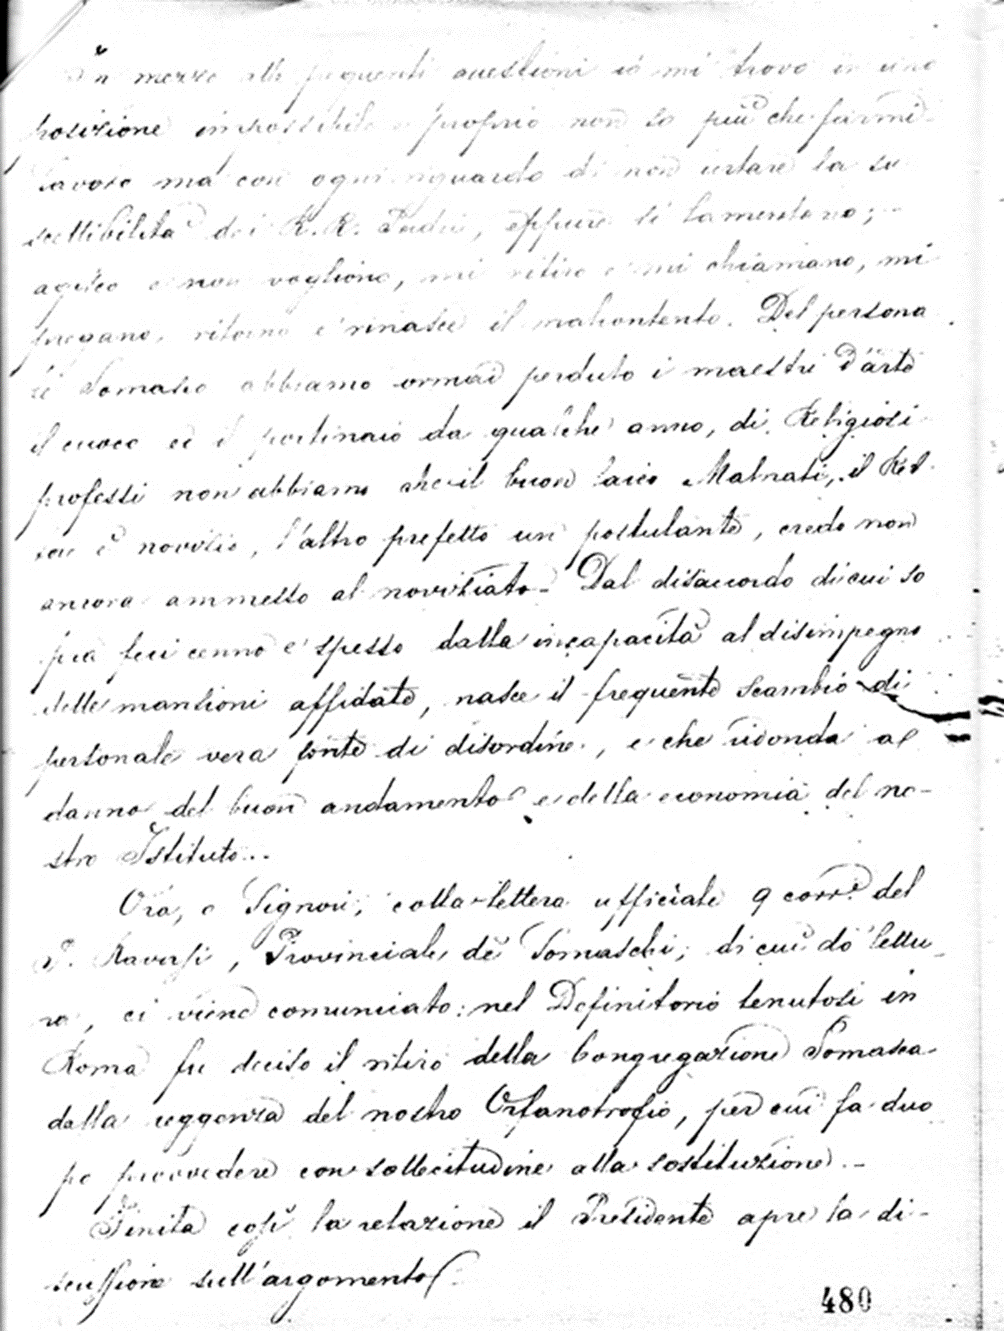 In mezzo alle frequenti questioni io mi trovo in una
posizione impossibile e proprio non so più che farmi.
Lavoro ma con ogni riguardo di non urtare la su
scettibilità dei R. R. Padri, eppure si lamentano; -
agisco e non vogliono, mi ritiro e mi chiamano, mi
pregano, ritorno e rinasce il malcontento. Del persona
le Somasco abbiamo ormai perduto i maestri d'arte
il cuoco ed il portinaio da qualche anno, di Religiosi
professi non abbiamo che il buon laico Malnati, il Ret
tore è novizio, l'altro prefetto un postulante, credo non
ancora ammesso al noviziato - Dal disaccordo di cui so
pra feci cenno e spesso dalla incapacità al disimpegno
delle mansioni affidate, nasce il frequente scambio di
personale vera fonte di disordine, e che ridonda al
danno del buon andamento e della economia del no-
stro Istituto..
Ora, o Signori, colla lettera ufficiale 9 corr.e del
P. Ravasi, Provinciale de Somaschi, di cui do lettu
ra, ci viene comunicato: nel Definitorio tenutosi in
Roma fu deciso il ritiro della Congregazione Somasca
dalla reggenza del nostro Orfanotrofio, per cui fa duo
po provvedere con sollecitudine alla sostituzione. -
Finita così la relazione il Presidente apre la di-
scussione sull'argomento.
480